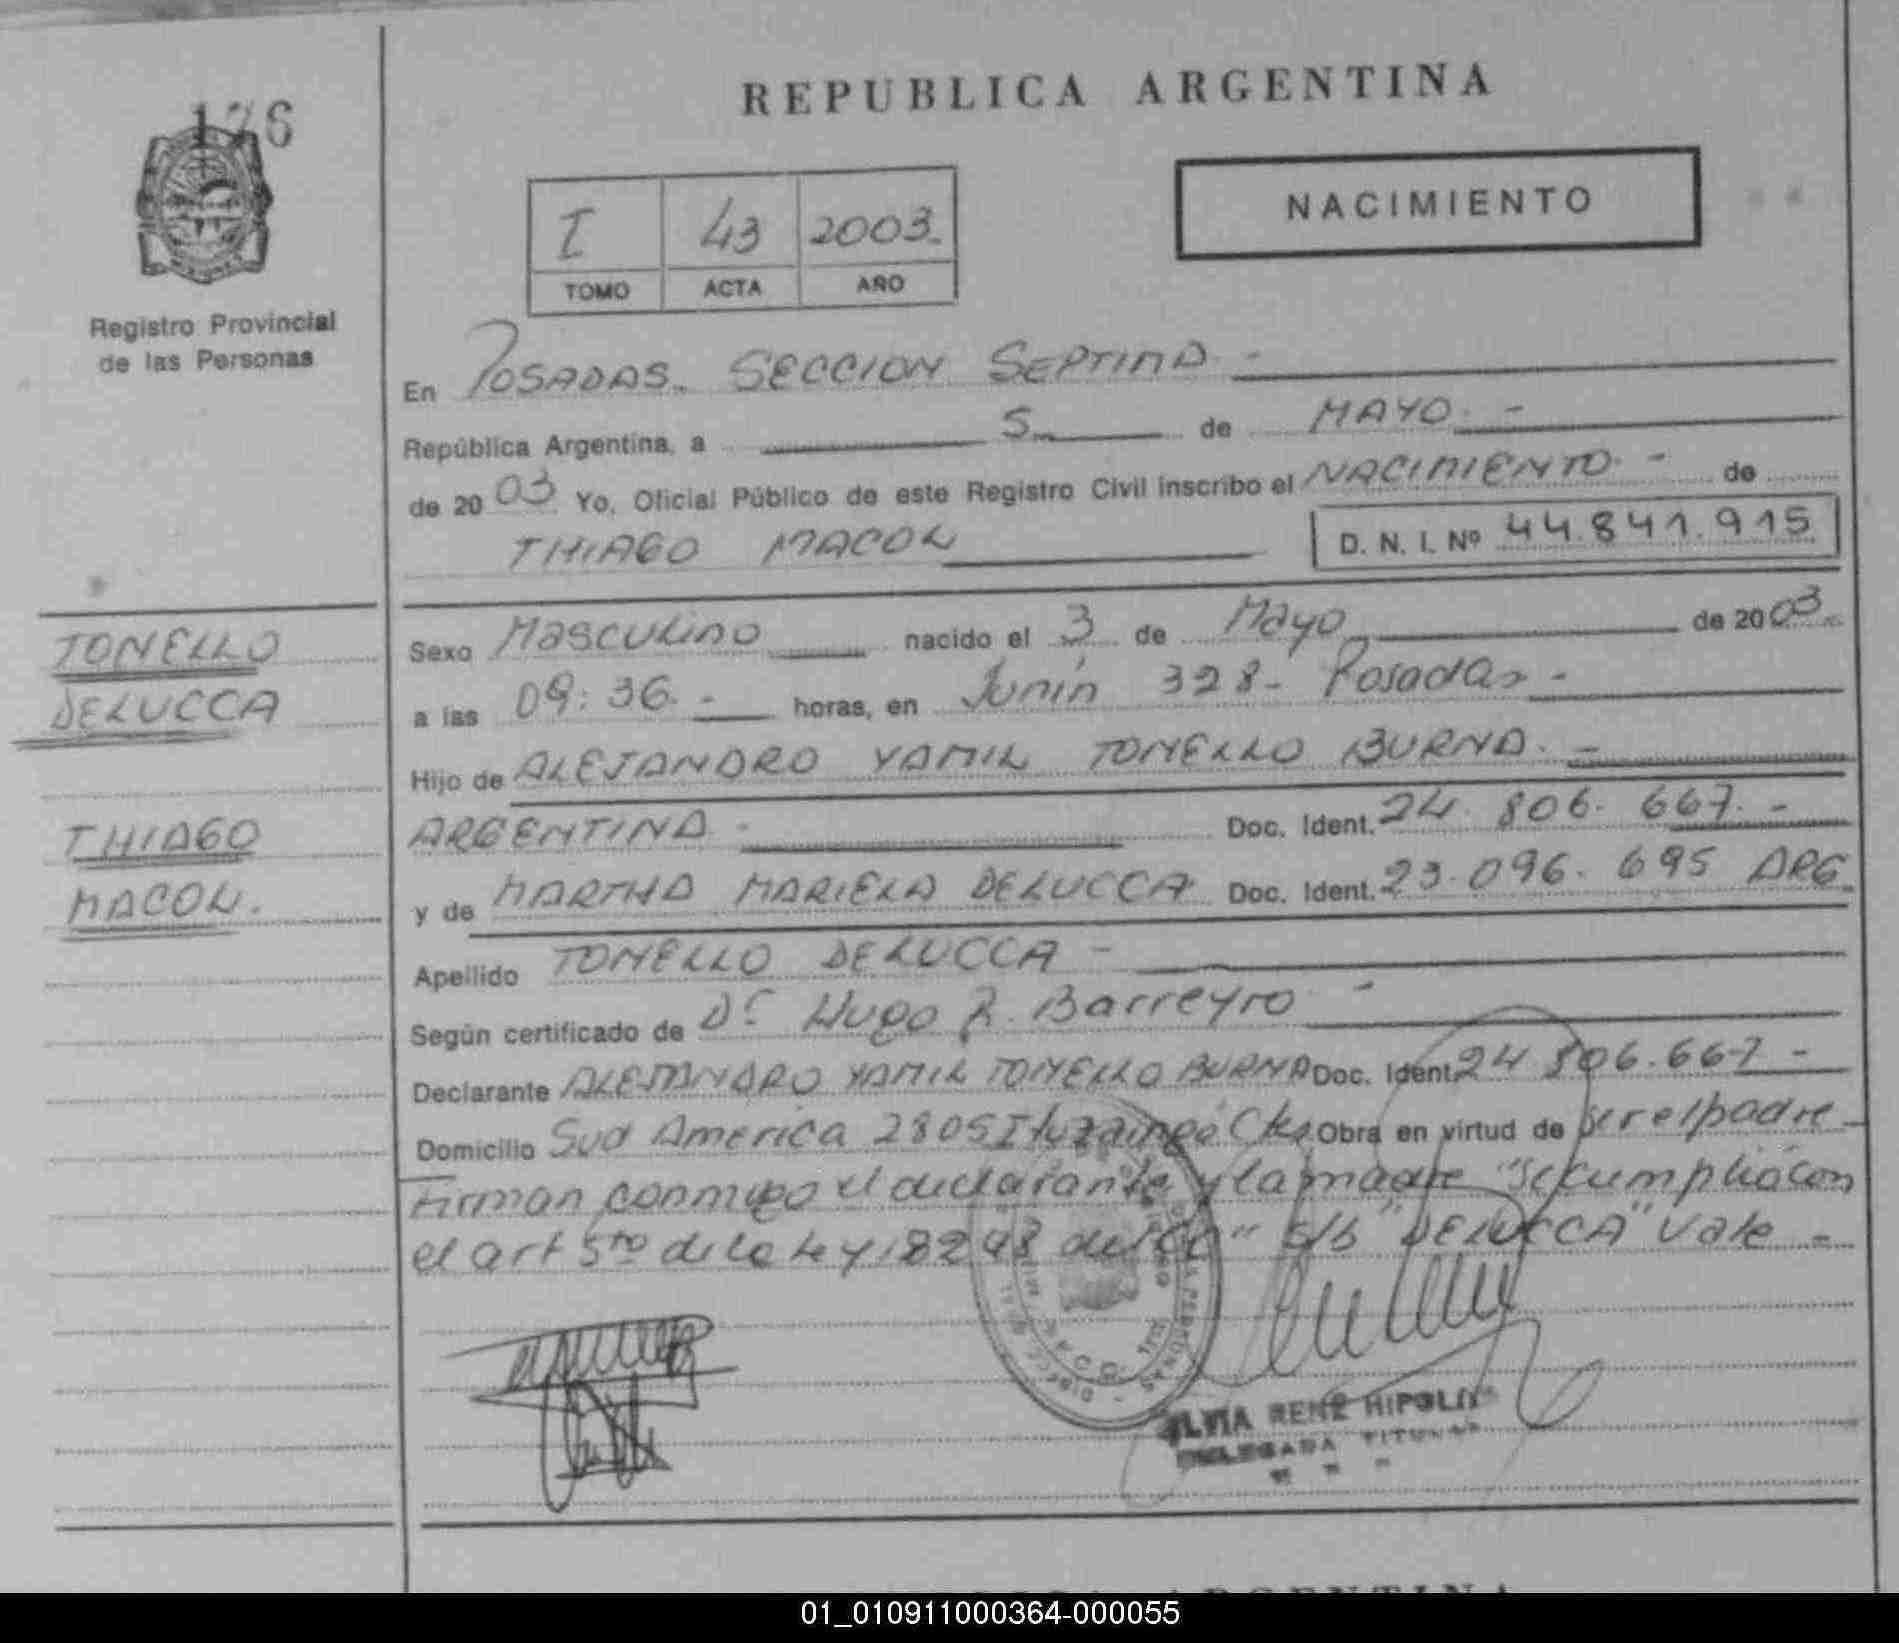 176
REPUBLICA ARGENTINA
NACIMIENTO
I 43 2003.
TOMO ACTA AÑO
Registro Provincial
de las Personas
En POSADAS. SECCION SEPTIMA -
República Argentina, a 5 de MAYO. -
de 2003 Yo, Oficial Público de este Registro Civil inscribo el NACIMIENTO. - de
THIAGO MACOL D. N. I. Nº 44.841.915
TONELLO
DELUCCA
THIAGO
MACOL.
Sexo Masculino nacido el 3 de Mayo de 2003.
a las 09:36. - horas, en Junín 328- Posadas -
Hijo de ALEJANDRO YAMIL TONELLO BURNA. -
ARGENTINA - Doc. Ident. 24. 806. 667. -
y de MARTHA MARIELA DELUCCA Doc. Ident. 23.096. 695 ARG.
Apellido TONELLO DELUCCA -
Según certificado de Dr Hugo R. Barreyro -
Declarante ALEJANDRO YAMIL TONELLO BURNA Doc. Ident. 24 806.667 -
Domicilio Sud America 2805 Ituzaingó Ctes Obra en virtud de ser el padre -
Firman conmigo el declarante y la madre "Se cumplió con
el art 5to de la Ley 18248 del " s/b "DELUCCA" Vale -
RENE HIPOLIT
DELEGADA TITULAR
REPUBLICA ARGENTINA
01_010911000364-000055